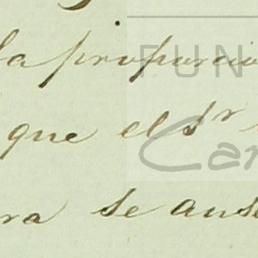 la proporcio
que el Sr
ra se aus
FUN
Car